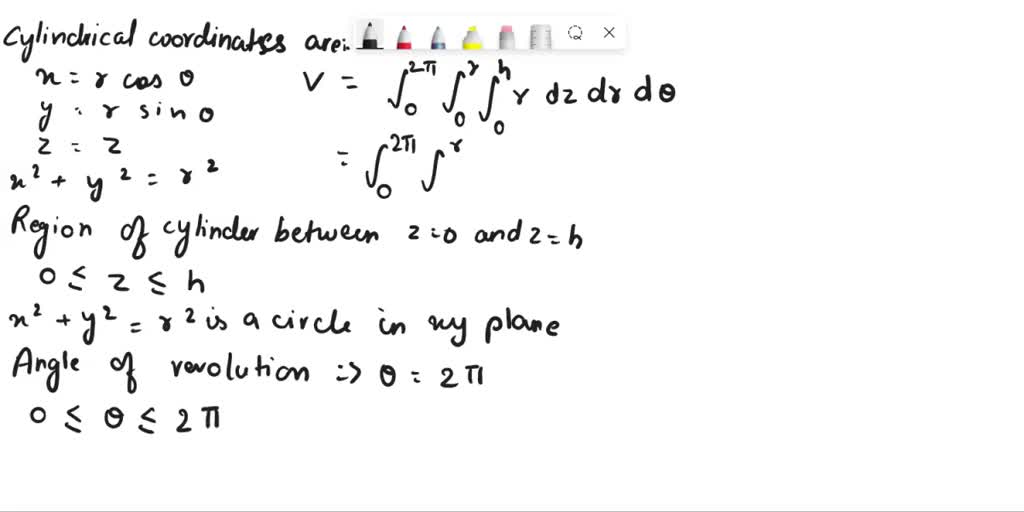 Cylindrical coordinates are:
x = r cos θ
y = r sin θ
z = z
x² + y² = r²
V = ∫₀^2π ∫₀^r ∫₀^h r dz dr dθ
= ∫₀^2π ∫^r
Region of cylinder between z=0 and z=h
0 ≤ z ≤ h
x² + y² = r² is a circle in xy plane
Angle of revolution => θ = 2π
0 ≤ θ ≤ 2π